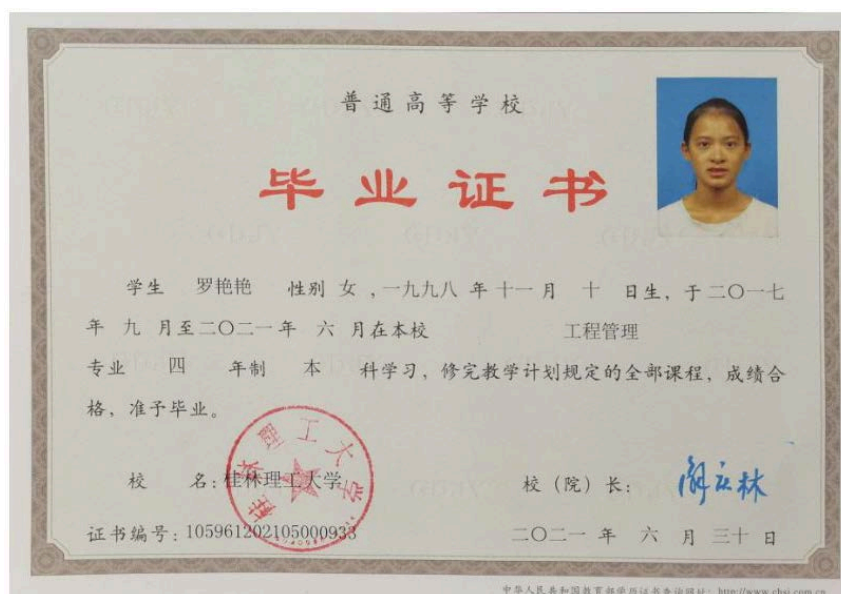 普通高等学校
毕业证书
学生 罗艳艳 性别 女 ，一九九八 年 十一 月 十 日生，于 二〇一七
年 九 月至 二〇二一 年 六 月在本校 工程管理
专业 四 年制 本 科学习，修完教学计划规定的全部课程，成绩合
格，准予毕业。
桂林理工大学
校 名：桂林理工大学 校（院）长：
证书编号：105961202105000933 二〇二一 年 六 月 三十 日
中华人民共和国教育部学历证书查询网址：http://www.chsi.com.cn